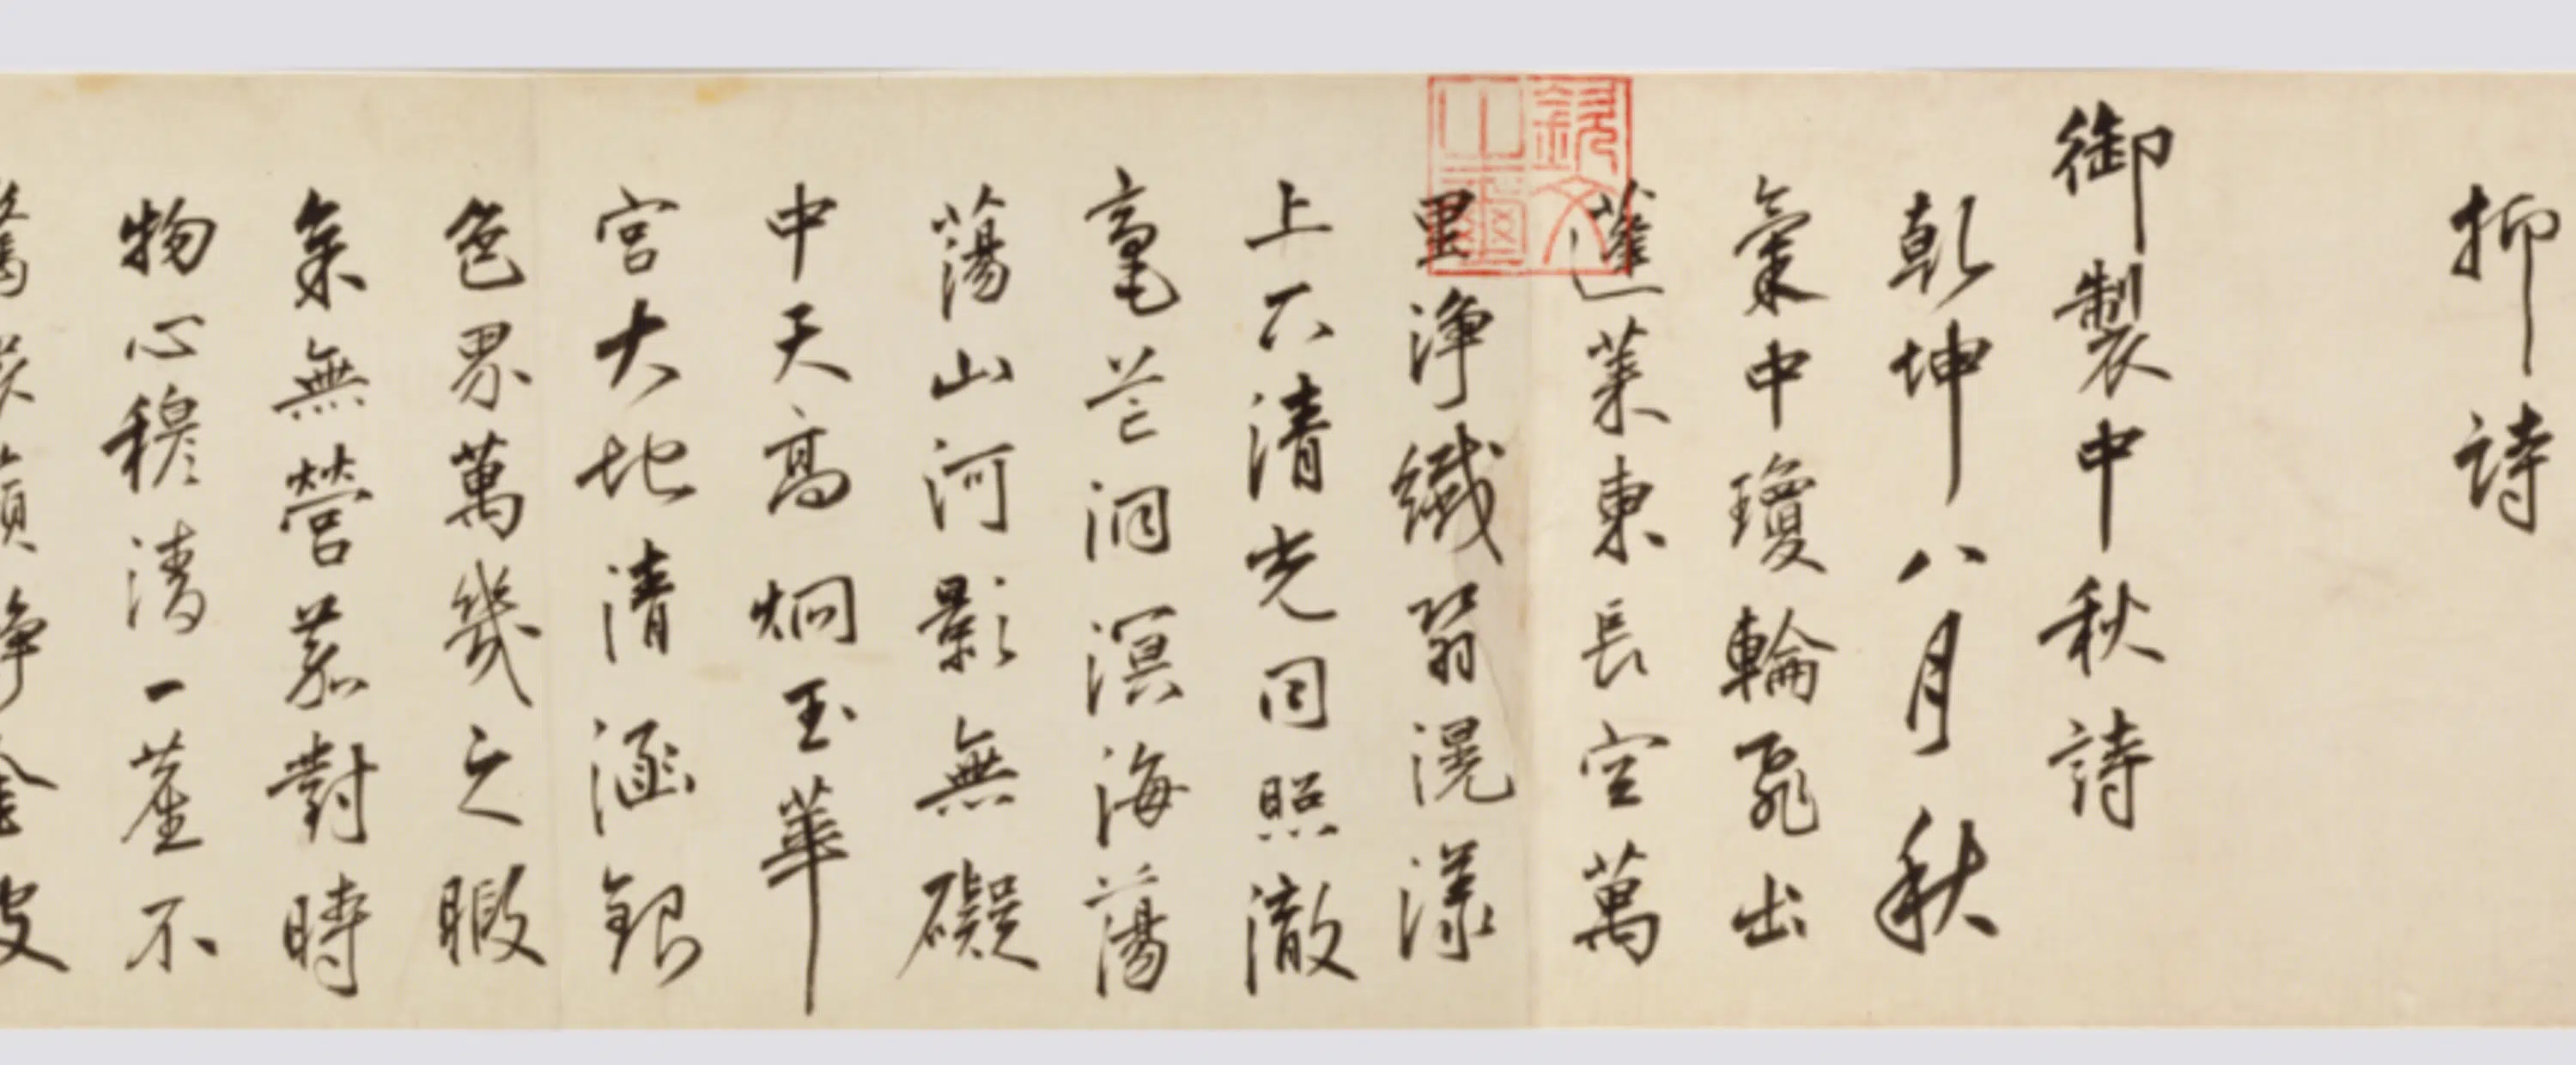 抑詩
御製中秋詩
乾坤八月秋
氣中瓊輪飛出
蓬萊東長空萬
里淨纖翳滉漾
上下清光同照徹
毫芒洞溟海蕩
蕩山河影無礙
中天高炯玉華
宮大地清涵銀
色界萬幾之暇
無營對時
物心穆清一塵不
欽文之璽